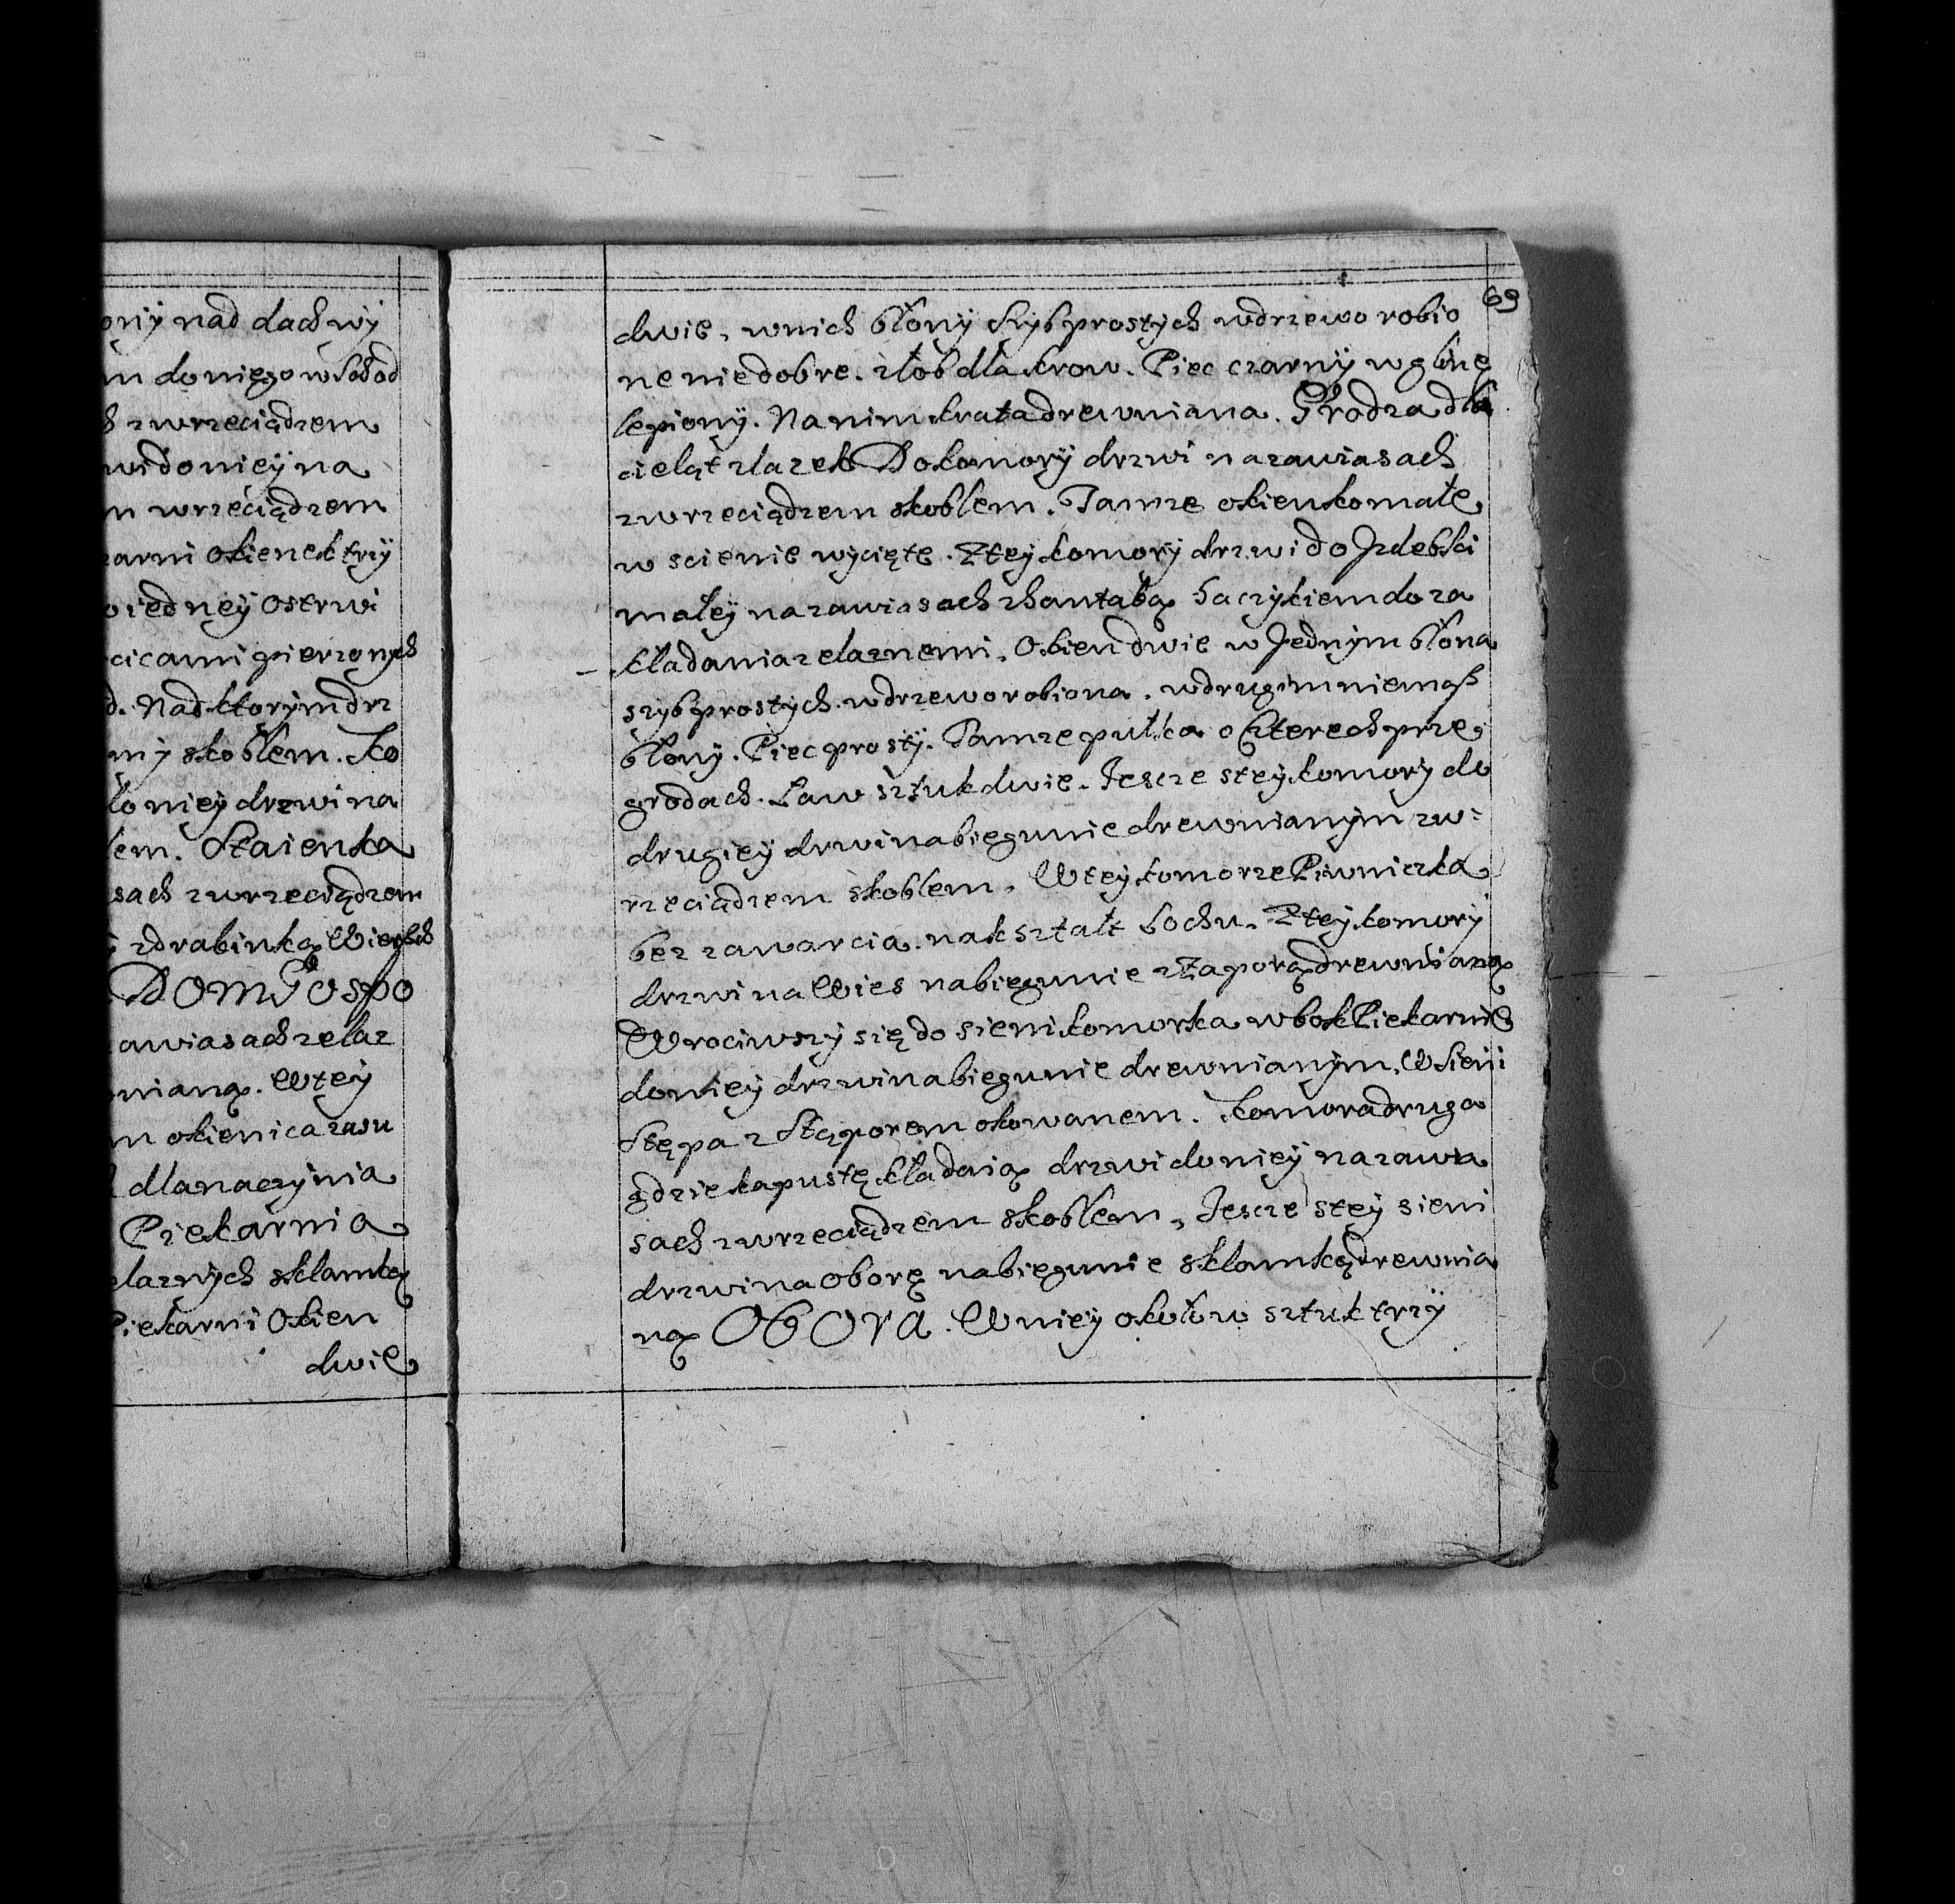 ony nad dach wy
m do niego wschod
h z wrzeciądzem
wi do niey na
m wrzeciądzem
karni okienek trzy
o iedney ostrwi
cicami pierzonych
d. Nad ktorym drz
my skoblem. Ko
do niey drzwi na
lem. Staienka
sach z wrzeciądzem
y z drabinką Wierzch
DOM Gospo
awiasach zelaz
nianą. W tey
m okienica zasu
l dla naczynia
Piekarnia
elaznych z klamką
Piekarni Okien
dwie
69
dwie, w nich błony szyb prostych w drzewo robio
ne niedobre. złob dla krow. Piec czarny w glinę
lepiony. Na nim krata drewniana. Grodza dla
cieląt z lazek Do komory drzwi na zawiasach
z wrzeciądzem skoblem. Tamze okienko małe
w scienie wycięte. Z tey komory drzwi do Izdebki
małey na zawiasach z hantabą haczykiem do za
kładania zelaznemi. Okien dwie w Jednym błona
szyb prostych w drzewo robiona. w drugim niemasz
błony. Piec prosty. Tamze pułka o czterech prze
grodach. Ław sztuk dwie. Jescze s tey komory do
drugiey drwi na biegunie drewnianym z w
rzeciądzem skoblem. W tey komorze Piwniczka
bez zawarcia na ksztalt Lochu. Z tey komory
drzwi na Wies na biegunie z Zaporą drewnianą
Wrociwszy się do sieni komorka w bok Piekarnie
do niey drzwi na biegunie drewnianym. W sieni
Stępa z Stąporem okowanem. Komora druga
gdzie kapustę kładaią drzwi do niey na zawia
sach z wrzeciądzem skoblem. Jescze s tey sieni
drzwi na Oborę na biegunie s klamką drewnia
ną OBORA. W niey okołow sztuk trzy